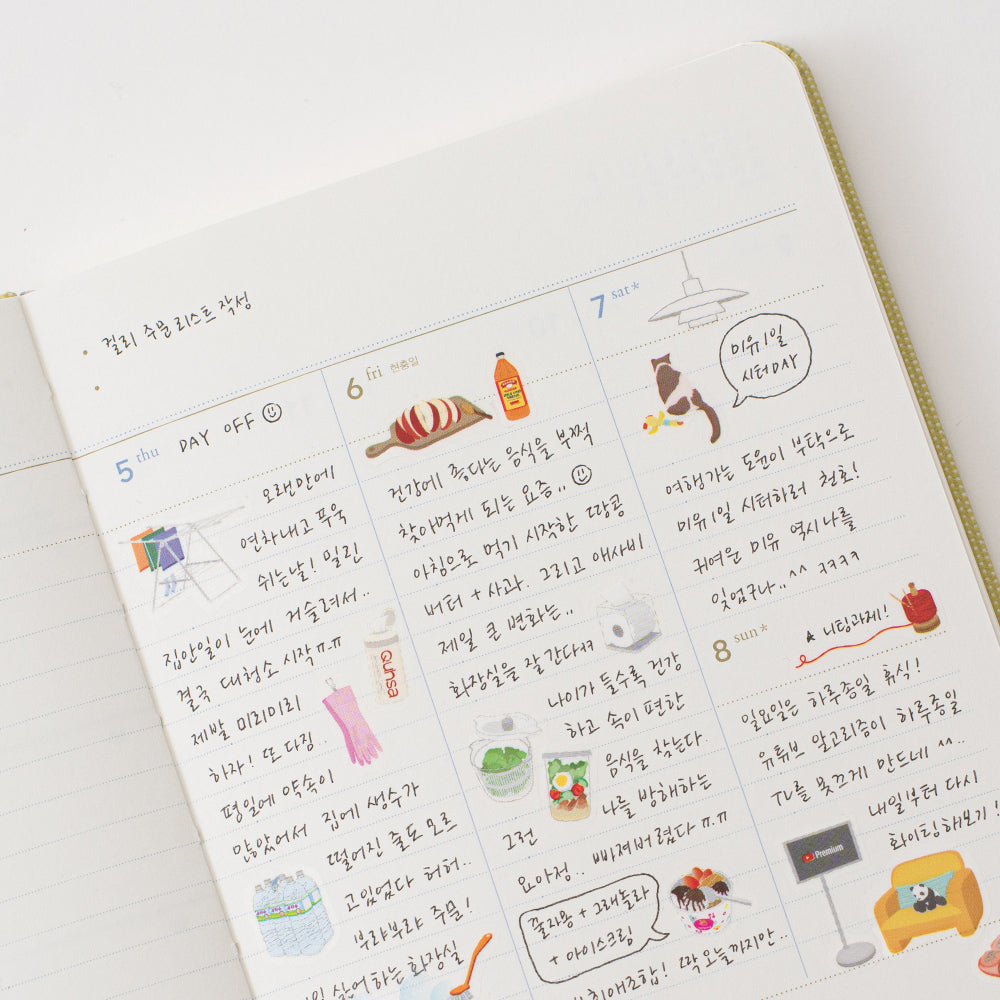 컬리 주문리스트 작성
5 thu DAY OFF
오랜만에
연차내고 푸욱
쉬는날! 밀린
집안일이 눈에 거슬려서..
결국 대청소 시작ㅠ.ㅠ
제발 미리미리
하자! 또 다짐..
평일에 약속이
많았어서 집에 생수가
떨어진 줄도 모르
고있었다 허허..
부랴부랴 주문!
싫어하는 화장실
Quhsa
6 fri 현충일
건강에 좋다는 음식을 부쩍
찾아먹게 되는 요즘..
아침으로 먹기 시작한 땅콩
버터 + 사과. 그리고 애사비.
제일 큰 변화는..
화장실을 잘 간다ㅋㅋ
나이가 들수록 건강
하고 속이 편한
음식을 찾는다.
나를 방해하는
그런
요아정.. 빠져버렸다 ㅠ.ㅠ
꿀자몽 + 그래놀라
+ 아이스크림
최애조합! 딱 오늘까지만..
7 sat*
미유1일
시터DAY
여행가는 도윤이 부탁으로
미유1일 시터하러 천호!
귀여운 미유 역시나를
잊었구나..^^ ㅋㅋㅋㅋ
8 sun*
★ 니팅과제!
일요일은 하루종일 휴식!
유튜브 알고리즘이 하루종일
TV를 못끄게 만드네 ^^..
내일부터 다시
화이팅해보기!
Premium